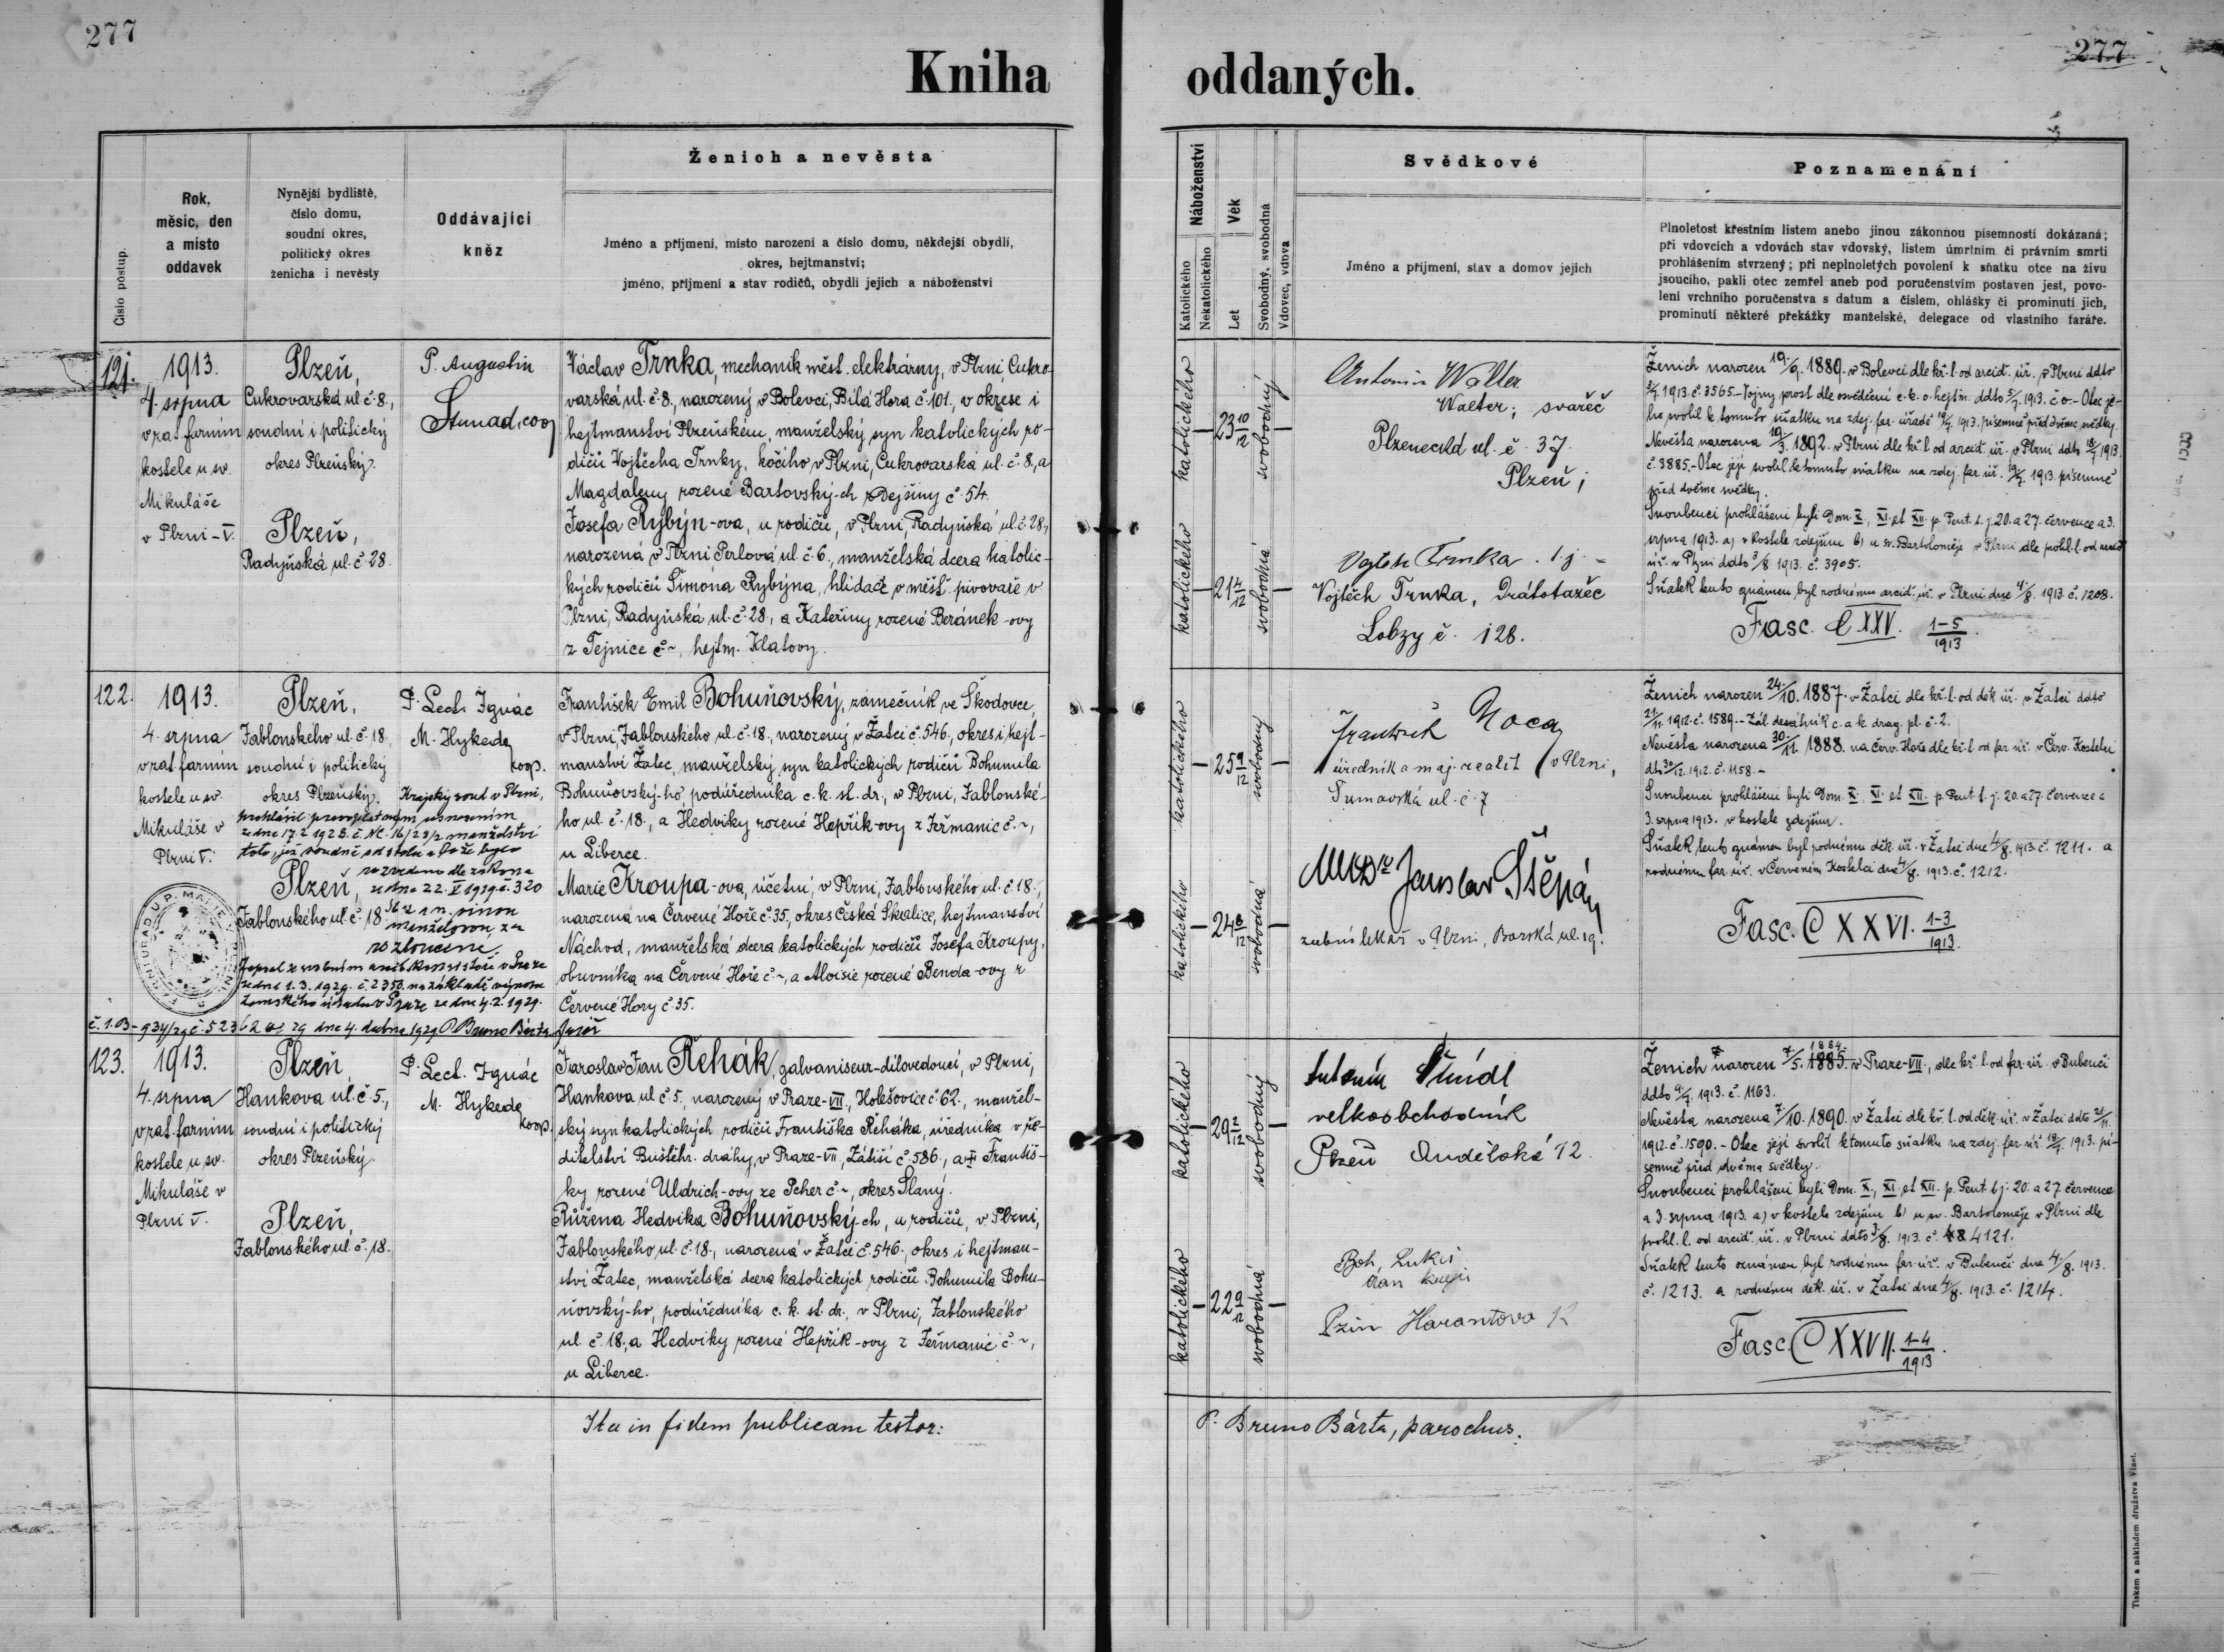 277
277
Kniha oddaných.
Číslo postup.
Rok,
měsíc, den
a místo
oddavek
Nynější bydliště,
číslo domu,
soudní okres,
politický okres
ženicha i nevěsty
Oddávající
kněz
Ženich a nevěsta
Jméno a příjmení, místo narození a číslo domu, někdejší obydlí,
okres, hejtmanství;
jméno, příjmení a stav rodičů, obydlí jejich a náboženství
Náboženství
Katolického
Nekatolického
Věk
Let
Svobodný, svobodná
Vdovec, vdova
Svědkové
Jméno a příjmení, stav a domov jejich
Poznamenání
Plnoletost křestním listem anebo jinou zákonnou písemností dokázaná;
při vdovcích a vdovách stav vdovský, listem úmrtním či právním smrti
prohlášením stvrzený; při neplnoletých povolení k sňatku otce na živu
jsoucího, pakli otec zemřel aneb pod poručenstvím postaven jest, povo-
lení vrchního poručenstva s datum a číslem, ohlášky či prominutí jich,
prominutí některé překážky manželské, delegace od vlastního faráře.
121.
1913.
4. srpna
v rat. farním
kostele u sv.
Mikuláše
v Plzni-V.
Plzeň,
Cukrovarská ul. č. 8.,
soudní i politický
okres Plzeňský.
Plzeň,
Radyňská ul. č. 28.
P. Augustin
Václav Trnka, mechanik měst. elektrárny, v Plzni, Cukro-
varská ul. č. 8., narozený v Bolevci, Bílá Hora č. 101., v okrese i
hejtmanství Plzeňském, manželský syn katolických ro-
dičů Vojtěcha Trnky, kočího v Plzni, Cukrovarská ul. č. 8., a
Magdaleny rozené Bartovský-ch z Dejšiny č. 54.
Josefa Rybýn-ova, u rodičů, v Plzni, Radyňská ul. č. 28.,
narozená v Plzni Perlová ul. č. 6., manželská dcera katolic-
kých rodičů Šimona Rybýna, hlídače v měšť. pivovaře v
Plzni, Radyňská ul. č. 28., a Kateřiny rozené Beránek-ovy
z Tejnice č. ~, hejtm. Klatovy.
katolického
23 10/12
svobodný
katolického
21 4/12
svobodná
Antonín Walter
Walter; svařeč
Plzenecká ul. č. 37.
Plzeň;
Vojtěch Trnka.
Vojtěch Trnka, Drátotažeč
Lobzy č. 128.
Ženich narozen 19./9. 1889. v Bolevci dle kř. l. od arciď. úř. v Plzni ddto
1913. č. 3565. Vojny prost dle osvědčení c. k. o. hejtm. ddto 1913. č. 0. - Otec je-
ho svolil k tomuto sňatku na zdej. far. úřadě 1913. písemně před dvěma svědky.
Nevěsta narozena 19./3. 1892. v Plzni dle kř. l. od arciď. úř. v Plzni ddto 1913.
č. 3885. - Otec její svolil k tomuto sňatku na zdej. far. úř. 1913. písemně
před dvěma svědky.
Snoubenci prohlášeni byli Dom. X., XI. et XII. p. Pent. t. j. 20. a 27. července a 3.
srpna 1913. a) v kostele zdejším b) u sv. Bartoloměje v Plzni dle prohl. l. od arciď.
úř. v Plzni ddto 3/8. 1913. č. 3905.
Sňatek tento oznámen byl rodnému arciď. úř. v Plzni dne 4./8. 1913. č. 1208.
Fasc. CXXV. 1-5/1913.
122.
1913.
4. srpna
v rat. farním
kostele u sv.
Mikuláše v
Plzni V.
Plzeň,
Jablonského ul. č. 18.,
soudní i politický
okres Plzeňský.
Plzeň,
Jablonského ul. č. 18
P. Lect. Ignác
M. Hykede,
koop.
Krajský soud v Plzni,
prohlásil pravoplatným usnesením
ze dne 17.2.1928. č. Nc. manželství
toto, již soudně od stolu a lože bylo
rozvedeno dle zákona
ze dne 22. V. 1919. č. 320
manželovou, za
rozloučené.
Zapsal ze svolením arcib. konsistoře v Praze
ze dne 1.3.1929. č. 2350. na základě výnosu
zemského úřadu v Praze ze dne 4.2.1929.
dne 4. dubna 1929 P. Bruno Bárta, farář
František Emil Bohuňovský, zámečník ve Škodovce,
v Plzni, Jablonského ul. č. 18., narozený v Žatci č. 546., okres i hejt-
manství Žatec, manželský syn katolických rodičů Bohumila
Bohuňovský-ho, podúředníka c. k. st. dr., v Plzni, Jablonské-
ho ul. č. 18., a Hedviky rozené Hepřík-ovy z Jeřmanic č. ~,
u Liberce.
Marie Kroupa-ova, účetní, v Plzni, Jablonského ul. č. 18.,
narozená na Červené Hoře č. 35., okres Česká Skalice, hejtmanství
Náchod, manželská dcera katolických rodičů Josefa Kroupy,
obuvníka na Červené Hoře č. ~, a Aloisie rozené Benda-ovy z
Červené Hory č. 35.
katolického
25 9/12
svobodný
katolického
24 8/12
svobodná
František Noca,
úředník a maj. realit v Plzni,
Šumavská ul. č. 7
MUDr Jaroslav Štěpán
zubní lékař v Plzni, Borská ul. 19.
Ženich narozen 24./10. 1887. v Žatci dle kř. l. od děk. úř. v Žatci ddto
21/11. 1912. č. 1589. - Zál. desátník c. a k. drag. pl. č. 2.
Nevěsta narozena 30./11. 1888. na Červ. Hoře dle kř. l. od far. úř. v Červ. Kostelci
dto 30/12. 1912. č. 1158. -
Snoubenci prohlášeni byli Dom. X., XI. et XII. p. Pent. t. j. 20. a 27. července a
3. srpna 1913. v kostele zdejším.
Sňatek tento oznámen byl rodnému děk. úř. v Žatci dne 4/8. 1913. č. 1211. a
rodnému far. úř. v Červeném Kostelci dne 4/8. 1913. č. 1212.
Fasc. CXXVI. 1-3/1913.
123.
1913.
4. srpna
v rat. farním
kostele u sv.
Mikuláše v
Plzni V.
Plzeň,
Hankova ul. č. 5.,
soudní i politický
okres Plzeňský.
Plzeň,
Jablonského ul. č. 18.
P. Lect. Ignác
M. Hykede,
koop.
Jaroslav Jan Řehák, galvaniseur-dílovedoucí, v Plzni,
Hankova ul. č. 5., narozený v Praze-VII., Holešovice č. 62., manžel-
ský syn katolických rodičů Františka Řeháka, úředníka v ře-
ditelství Buštěhr. dráhy, v Praze-VII, Zátiší č. 586., a Františ-
ky rozené Uldrich-ovy ze Pcher č. ~, okres Slaný.
Růžena Hedvika Bohuňovský-ch, u rodičů, v Plzni,
Jablonského ul. č. 18., narozená v Žatci č. 546., okres i hejtman-
ství Žatec, manželská dcera katolických rodičů Bohumila Bohu-
ňovský-ho, podúředníka c. k. st. dr., v Plzni, Jablonského
ul. č. 18., a Hedviky rozené Hepřík-ovy z Jeřmanic č. ~,
u Liberce.
katolického
29 2/12
svobodný
katolického
22 9/12
svobodná
Antonín
velkoobchodník
Plzeň Andělské 12
Boh. Lukeš
Harantova
Ženich narozen 7/5. 1884. 1885. v Praze-VII., dle kř. l. od far. úř. v Bubenči
ddto 1913. č. 1163.
Nevěsta narozena 7/10. 1890. v Žatci dle kř. l. od děk. úř. v Žatci ddto 21/11.
1912. č. 1590. - Otec její svolil k tomuto sňatku na zdej. far. úř. 1913. pí-
semně před dvěma svědky.
Snoubenci prohlášeni byli Dom. X., XI. et XII. p. Pent. t. j. 20. a 27. července
a 3. srpna 1913. a) v kostele zdejším b) u sv. Bartoloměje v Plzni dle
prohl. l. od arciď. úř. v Plzni ddto 3/8. 1913. č. 4121.
Sňatek tento oznámen byl rodnému far. úř. v Bubenči dne 4./8. 1913.
č. 1213. a rodnému děk. úř. v Žatci dne 4/8. 1913. č. 1214.
Fasc. CXXVII. 1-4/1913.
Ita in fidem publicam testor:
P. Bruno Bárta, parochus.
Tiskem a nákladem družstva Vlast.